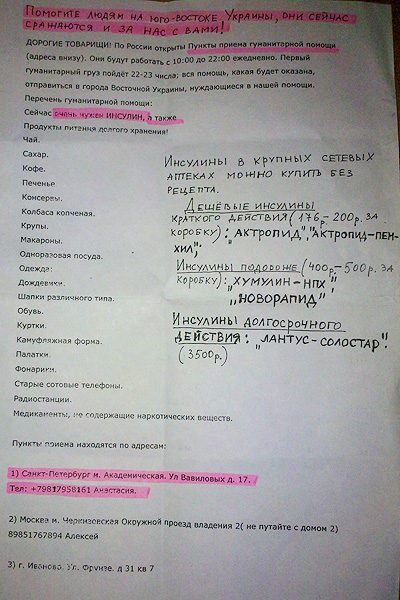 Помогите людям на юго-востоке Украины, они сейчас
сражаются и за нас с вами!
ДОРОГИЕ ТОВАРИЩИ! По России открыты Пункты приема гуманитарной помощи
(адреса внизу). Они будут работать с 10:00 до 22:00 ежедневно. Первый
гуманитарный груз пойдёт 22-23 числа; вся помощь, какая будет оказана,
отправиться в города Восточной Украины, нуждающиеся в нашей помощи.
Перечень гуманитарной помощи:
Сейчас очень нужен ИНСУЛИН, а также
Продукты питания долгого хранения!
Чай.
Сахар.
Кофе.
Печенье
Консервы.
Колбаса копченая.
Крупы.
Макароны.
Одноразовая посуда.
Одежда:
Дождевики.
Шапки различного типа.
Обувь.
Куртки.
Камуфляжная форма.
Палатки.
Фонарики.
Старые сотовые телефоны.
Радиостанции.
Медикаменты, не содержащие наркотических веществ.
Инсулины в крупных сетевых
аптеках можно купить без
рецепта.
Дешёвые инсулины
краткого действия (176р.- 200р. за
коробку): „Актропид", „Актропид-пен-
хил",
Инсулины подороже (400р.- 500р. за
коробку): „Хумулин-НПХ"
„Новорапид"
Инсулины долгосрочного
действия: „Лантус-Солостар".
(3500р.)
Пункты приема находятся по адресам:
1) Санкт-Петербург м. Академическая. Ул Вавиловых д. 17.
Тел: +79817958161 Анастасия.
2) Москва м. Черкизовская Окружной проезд владения 2( не путайте с домом 2)
89851767894 Алексей
3) г. Иваново. Ул. Фрунзе. д 31 кв 7